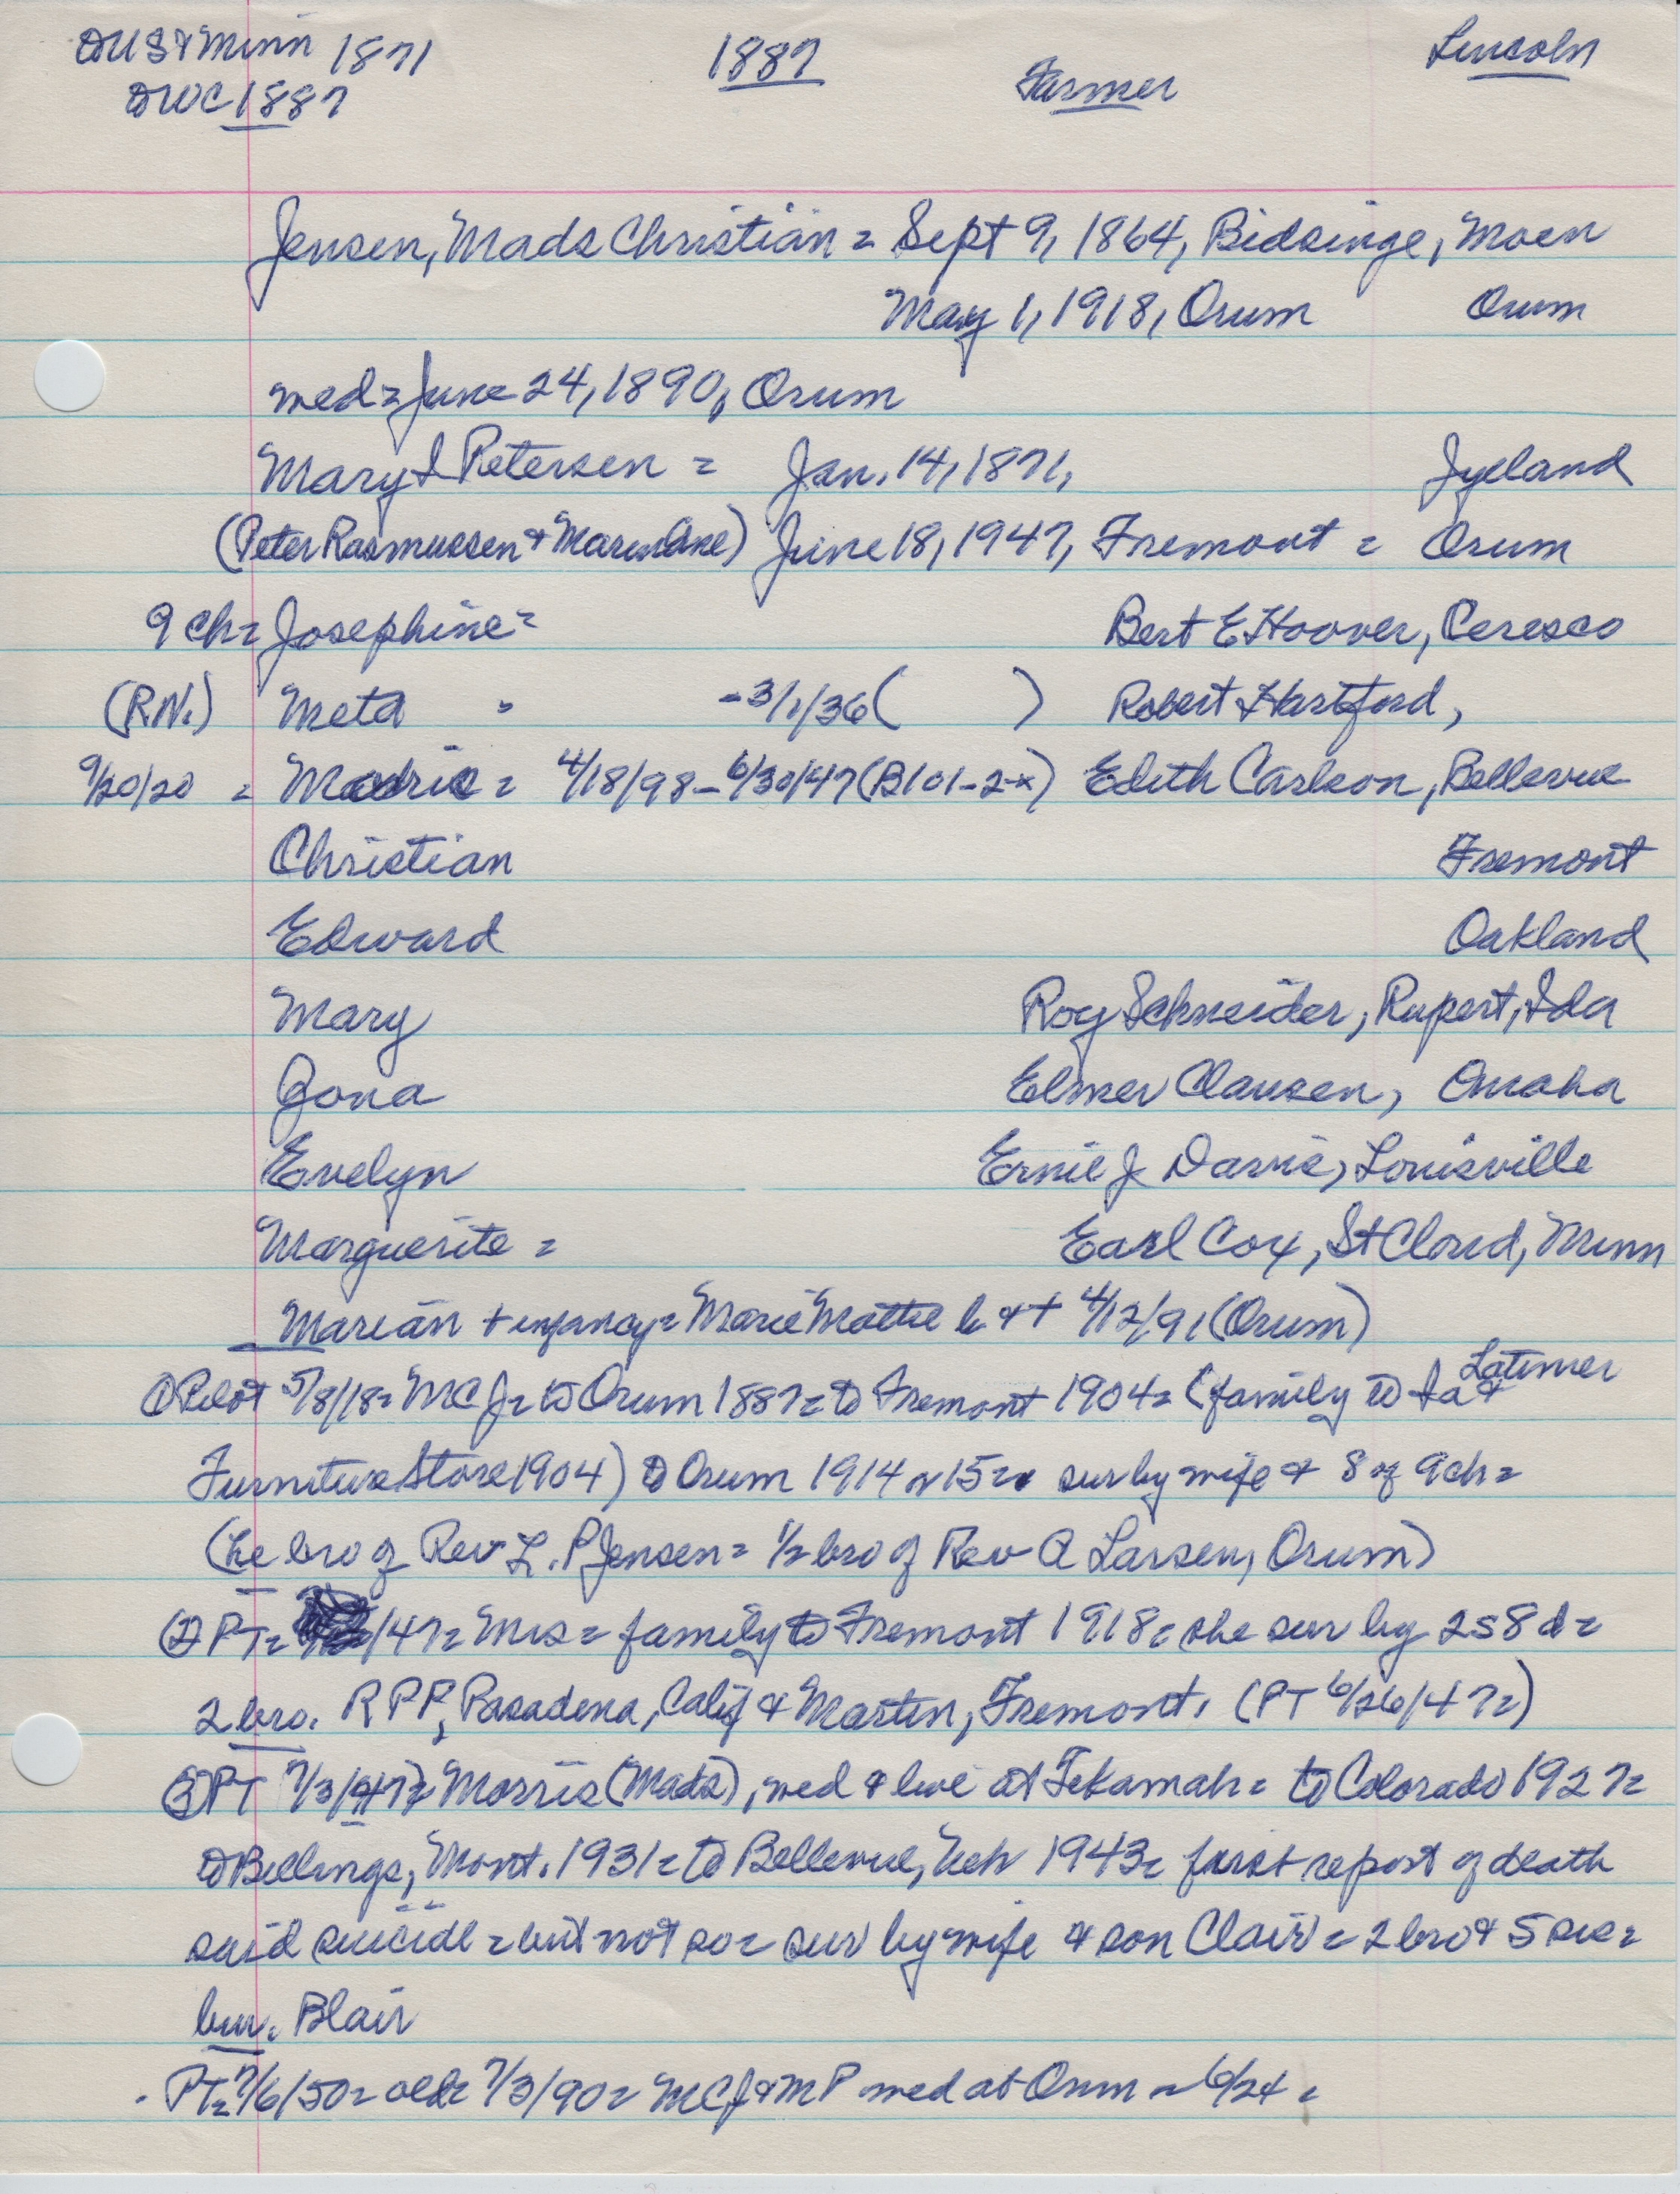 DUS & Minn 1871 1887 Farmer Lincoln
DWC 1887
Jensen, Mads Christian = Sept 9, 1864, Bidsinge, Moen
May 1, 1918, Orum Orum
med = June 24, 1890, Orum
Mary S Petersen = Jan. 14, 1871, Jyeland
(Peter Rasmussen + Maren Ane) June 18, 1947, Fremont = Orum
9 ch = Josephine = Bert E Hoover, Ceresco
(R.N.) Meta = - 3/1/36 ( ) Robert Hartford,
9/20/20 = = 4/18/98 - 6/30/47 (B101-2-x) Edith Carlson, Bellevue
Christian Fremont
Edward Oakland
Mary Roy Schneider, Rupert, Ida
Jona Elmer Clausen, Omaha
Evelyn Ernie J Davis, Louisville
Marguerite = Earl Cox, St Cloud, Minn
Marian + infancy = Marie Mattie b & + 4/12/91 (Orum)
① Pilot 5/8/18 = MCJ = to Orum 1887 = to Fremont 1904 = (family to Ia & Latimer
Furniture Store 1904) to Orum 1914 or 15 = sur by wife & 8 of 9 ch =
(he bro of Rev L. P Jensen = 1/2 bro of Rev A Larsen, Orum)
② PT = /47 = Mrs = family to Fremont 1918 = she sur by 2 s 8 d =
2 bro. R P P, Pasadena, Calif & Martin, Fremont. (PT 6/26/47 =)
③ PT 7/3/47 = Morris (Mads), med & live at Tekamah = to Colorado 1927 =
to Billings, Mont. 1931 = to Bellevue, Neb 1943 = first report of death
said suicide = but not so = sur by wife & son Clair = 2 bro & 5 sis =
bur. Blair
- PT = 7/6/50 = 7/3/90 = MCJ & MP med at Orum 6/24 =